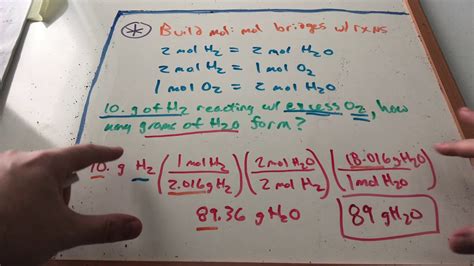 * Build mol:mol bridges w/ rxns
2 mol H₂ = 2 mol H₂O
2 mol H₂ = 1 mol O₂
1 mol O₂ = 2 mol H₂O
10. g of H₂ reacting w/ excess O₂, how
many grams of H₂O form?
10. g H₂ (1 mol H₂ / 2.016 g H₂) (2 mol H₂O / 2 mol H₂) (18.016 g H₂O / 1 mol H₂O)
89.36 g H₂O
89 g H₂O